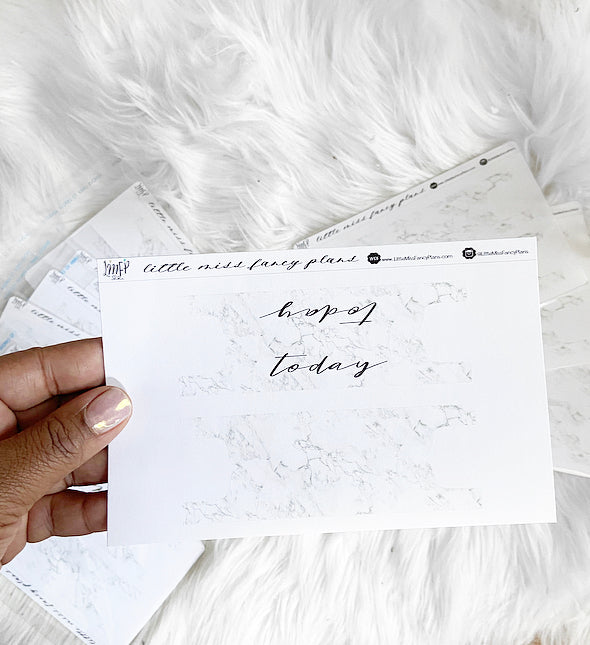 LMFP little miss fancy plans www.LittleMissFancyPlans.com @LittleMissFancyPlans
today
today
little miss fancy plans
little miss fancy plans
little miss fancy plans